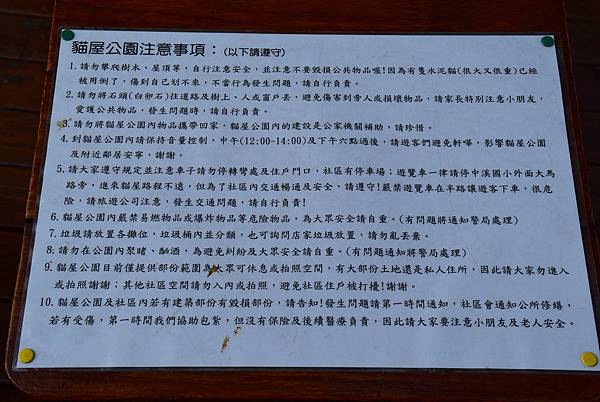 貓屋公園注意事項：(以下請遵守)
1. 請勿攀爬樹木、屋頂等，自行注意安全，並注意不要毀損公共物品喔!因為有隻水泥貓(很大又很重)已經
被用倒了，傷到自己划不來，不當行為發生問題，請自行負責。
2. 請勿將石頭(白卵石)往道路及樹上、人或窗戶丟，避免傷害到旁人或損壞物品，請家長特別注意小朋友，
愛護公共物品，發生問題時，請自行負責。
3. 請勿將貓屋公園內物品攜帶回家，貓屋公園內的建設是公家機關補助，請珍惜。
4. 到貓屋公園內請保持音量控制，中午(12:00-14:00)及下午六點過後，請遊客們避免軒嘩，影響貓屋公園
及附近鄰居安寧，謝謝。
5. 請大家遵守規定並注意車子請勿停轉彎處及住戶門口，社區有停車場；遊覽車一律請停中溪國小外面大馬
路旁，進來貓屋路程不遠，但為了社區內交通暢通及安全，請遵守!嚴禁遊覽車在半路讓遊客下車，很危
險，請旅遊公司注意，發生交通問題，請自行負責!
6. 貓屋公園內嚴禁易燃物品或爆炸物品等危險物品，為大眾安全請自重。(有問題將通知警局處理)
7. 垃圾請放置各攤位，垃圾桶內並分類，也可詢問店家垃圾放置，請勿亂丟棄。
8. 請勿在公園內聚賭、酗酒，為避免糾紛及大眾安全請自重。(有問題通知將警局處理)
9. 貓屋公園目前僅提供部份範圍為大眾可休息或拍照空間，有大部份土地還是私人住所，因此請大家勿進入
或拍照謝謝；其他社區空間請勿入內或拍照，避免社區住戶被打擾!謝謝。
10. 貓屋公園及社區內若有建築部份有毀損部份，請告知!發生問題請第一時間通知，社區會通知公所修繕，
若有受傷，第一時間我們協助包紮，但沒有保險及後續醫療負責，因此請大家要注意小朋友及老人安全。